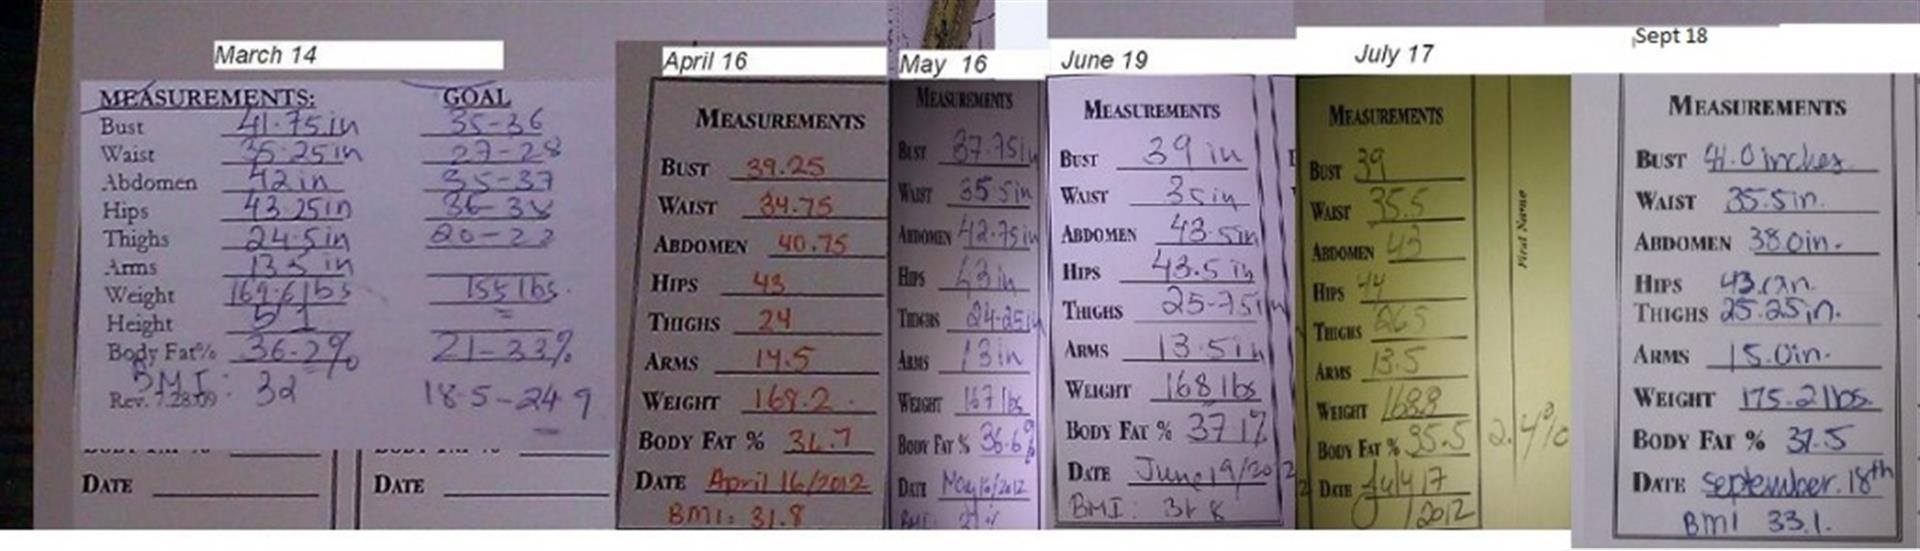 March 14
MEASUREMENTS: GOAL
Bust 41.75in 35-36
Waist 35.25in 27-28
Abdomen 42in 35-37
Hips 43.25in 36-38
Thighs 24.5in 20-22
Arms 13.5 in
Weight 169.6lbs 155lbs.
Height 5'1
Body Fat% 36-2% 21-33%
BMI: 32 18.5-24.9
Rev. 7.28.09
DATE DATE
April 16
MEASUREMENTS
BUST 39.25
WAIST 34.75
ABDOMEN 40.75
HIPS 43
THIGHS 24
ARMS 14.5
WEIGHT 168.2
BODY FAT %
DATE April 16/2012
BMI: 31.8
May 16
MEASUREMENTS
BUST 37.75in
WAIST 35.5in
ABDOMEN 42.75in
HIPS 43in
THIGHS 24.25in
ARMS 13in
WEIGHT 167lbs
BODY FAT % 36.6%
DATE May 16/2012
BMI:
June 19
MEASUREMENTS
BUST 39 in
WAIST 35in
ABDOMEN 43.5in
HIPS 43.5 in
THIGHS 25.75in
ARMS 13.5in
WEIGHT 168lbs
BODY FAT % 37.1%
DATE June 19/2012
BMI: 31.8
July 17
MEASUREMENTS
BUST 39
WAIST 35.5
ABDOMEN 43
HIPS 44
THIGHS 26.5
ARMS 13.5
WEIGHT 168.8
BODY FAT % 35.5 2.4%
DATE July 17
/2012
First Name
Sept 18
MEASUREMENTS
BUST 41.0 inches.
WAIST 35.5in.
ABDOMEN 38.0in.
HIPS 43.
THIGHS 25.25in.
ARMS 15.0in.
WEIGHT 175.2lbs.
BODY FAT % 37.5
DATE September. 18th
BMI 33.1.